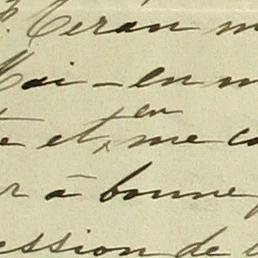 Ceran m
Moi - en m
en
e et, me co
r à bonne
ession de l